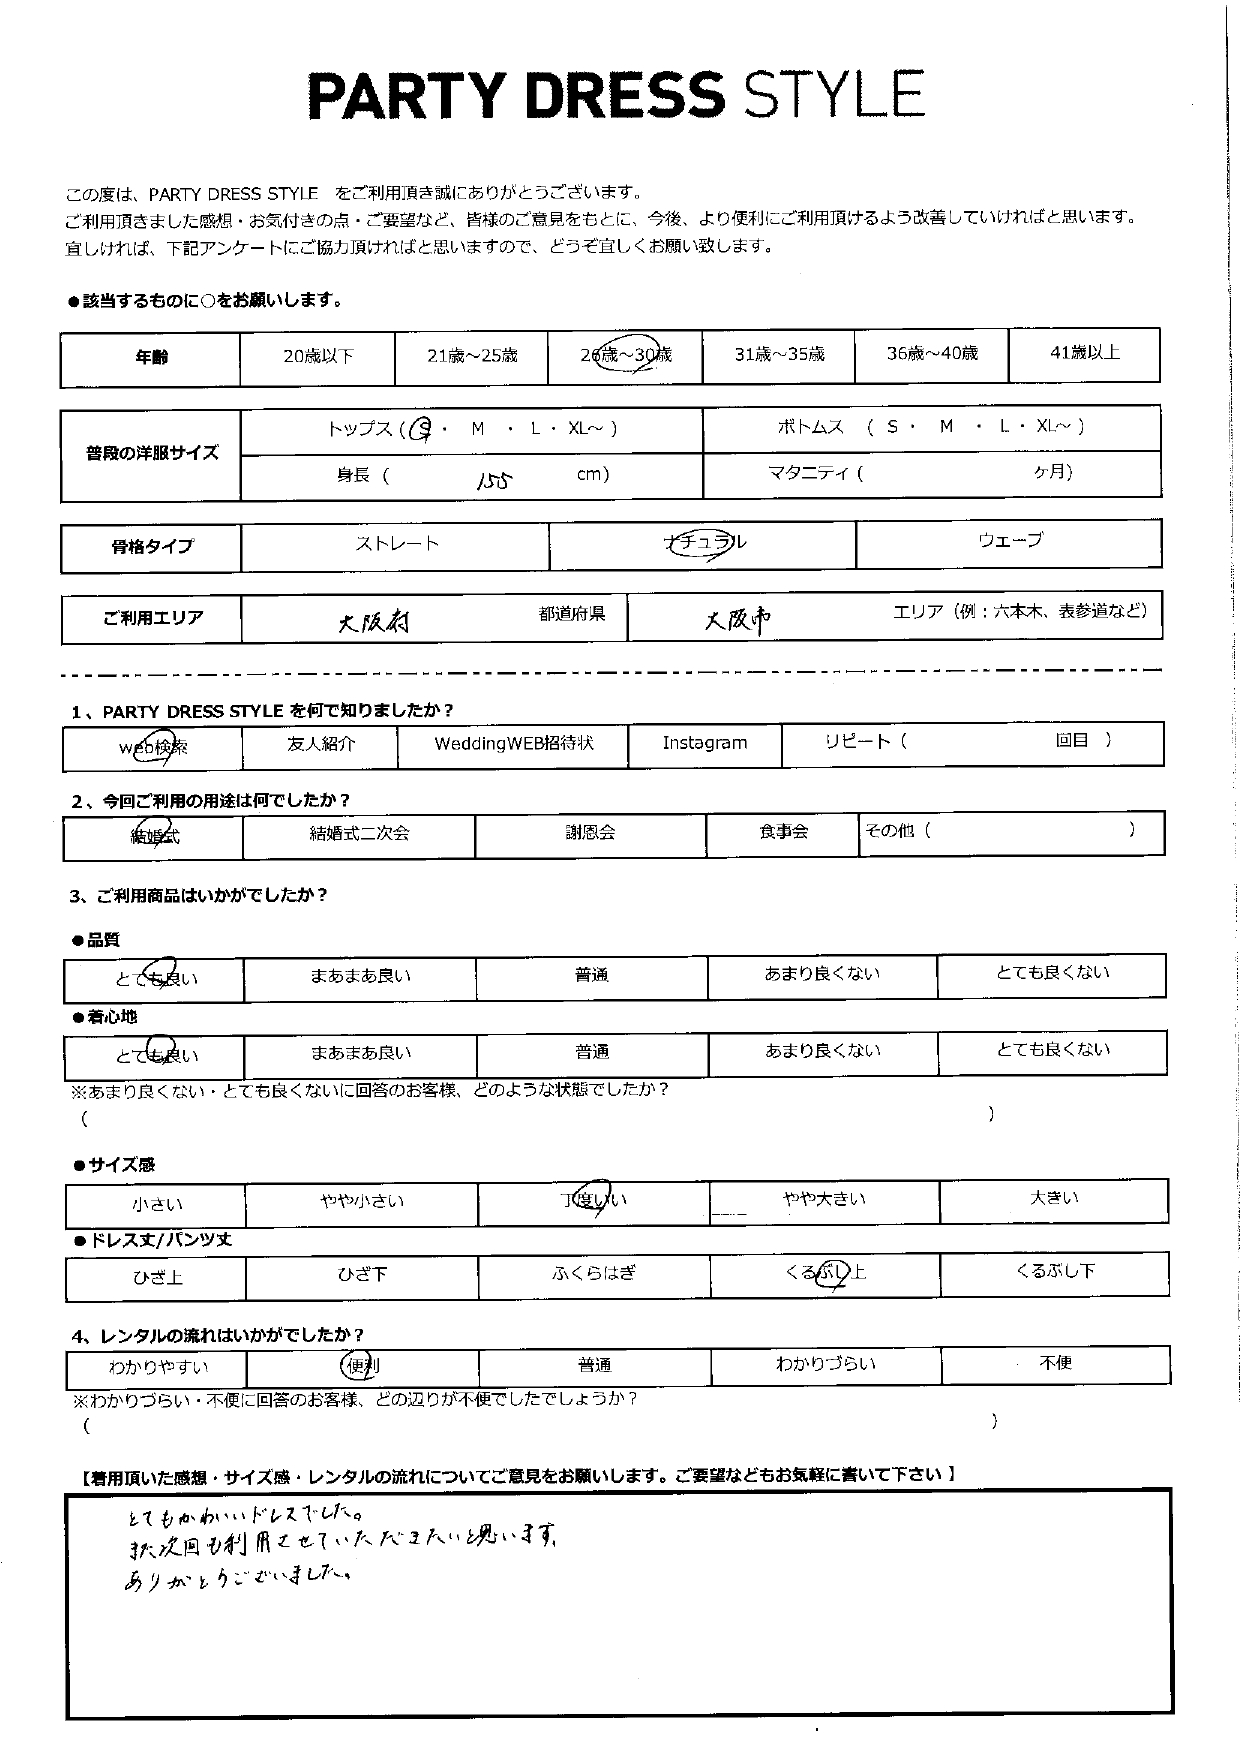 PARTY DRESS STYLE
この度は、PARTY DRESS STYLE をご利用頂き誠にありがとうございます。
ご利用頂きました感想・お気付きの点・ご要望など、皆様のご意見をもとに、今後、より便利にご利用頂けるよう改善していければと思います。
宜しければ、下記アンケートにご協力頂ければと思いますので、どうぞ宜しくお願い致します。
●該当するものに○をお願いします。
年齢 20歳以下 21歳～25歳 26歳～30歳 31歳～35歳 36歳～40歳 41歳以上
普段の洋服サイズ
トップス ( S ・ M ・ L ・ XL～ ) ボトムス ( S ・ M ・ L ・ XL～ )
身長 ( 155 cm) マタニティ ( ヶ月)
骨格タイプ ストレート ナチュラル ウェーブ
ご利用エリア 大阪府 都道府県 大阪市 エリア（例：六本木、表参道など）
1、PARTY DRESS STYLE を何で知りましたか？
web検索 友人紹介 WeddingWEB招待状 Instagram リピート ( 回目 )
2、今回ご利用の用途は何でしたか？
結婚式 結婚式二次会 謝恩会 食事会 その他 ( )
3、ご利用商品はいかがでしたか？
●品質
とても良い まあまあ良い 普通 あまり良くない とても良くない
●着心地
とても良い まあまあ良い 普通 あまり良くない とても良くない
※あまり良くない・とても良くないに回答のお客様、どのような状態でしたか？
( )
●サイズ感
小さい やや小さい 丁度いい やや大きい 大きい
●ドレス丈/パンツ丈
ひざ上 ひざ下 ふくらはぎ くるぶし上 くるぶし下
4、レンタルの流れはいかがでしたか？
わかりやすい 便利 普通 わかりづらい 不便
※わかりづらい・不便に回答のお客様、どの辺りが不便でしたでしょうか？
( )
【着用頂いた感想・サイズ感・レンタルの流れについてご意見をお願いします。ご要望などもお気軽に書いて下さい 】
とてもかわいいドレスでした。
また次回も利用させていただきたいと思います。
ありがとうございました。